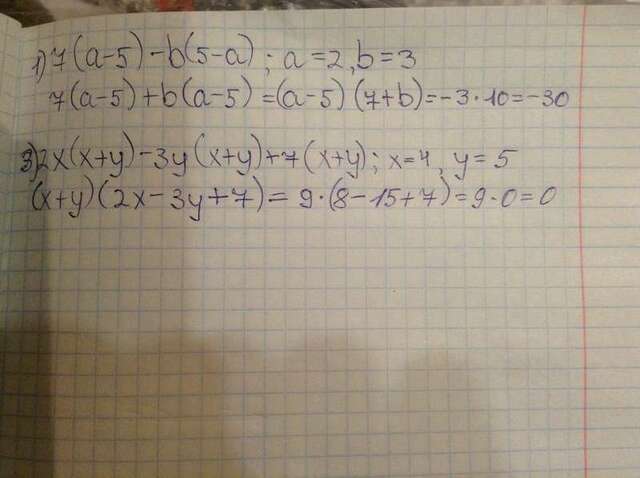 1) 7(a-5)-b(5-a); a=2, b=3
7(a-5)+b(a-5)=(a-5)(7+b)=-3·10=-30
3) 2x(x+y)-3y(x+y)+7(x+y); x=4, y=5
(x+y)(2x-3y+7)=9·(8-15+7)=9·0=0